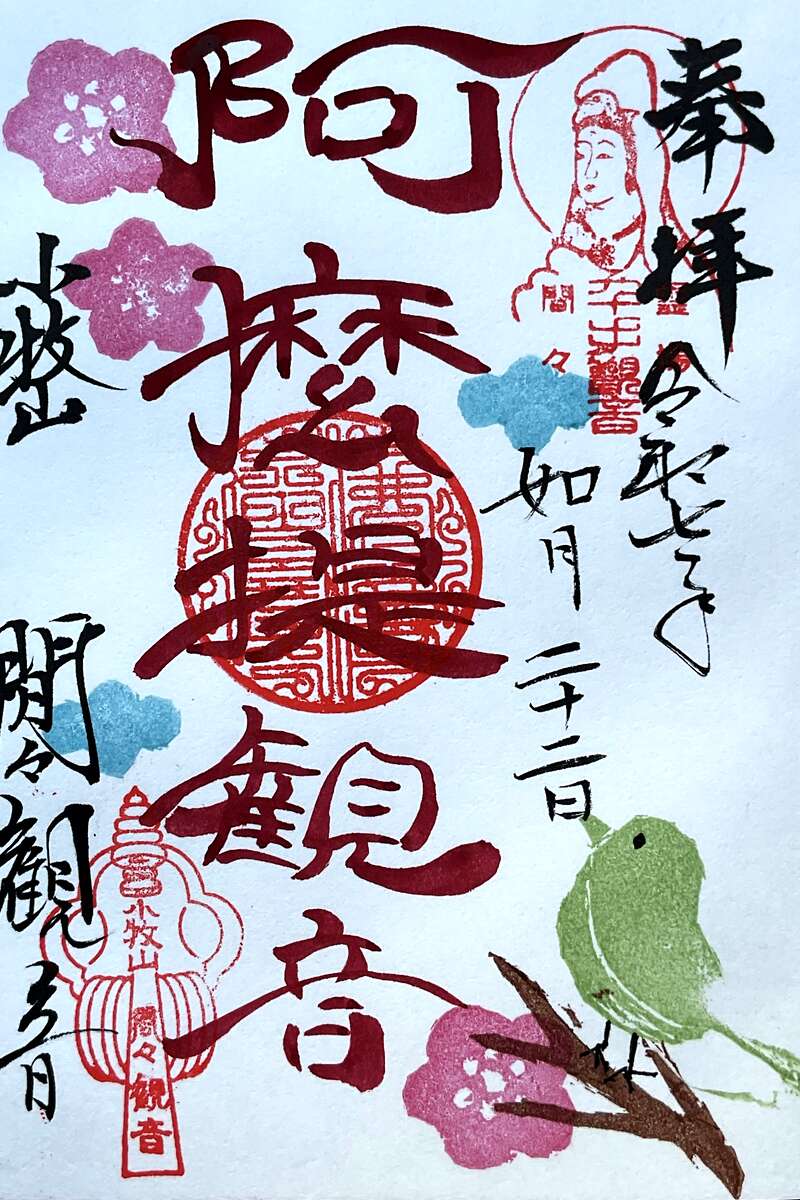 奉拝
令和七年
如月
二十二日
阿摩提觀音
小牧山
間々觀音
霊場
子安觀音
間々
小牧山
間々觀音